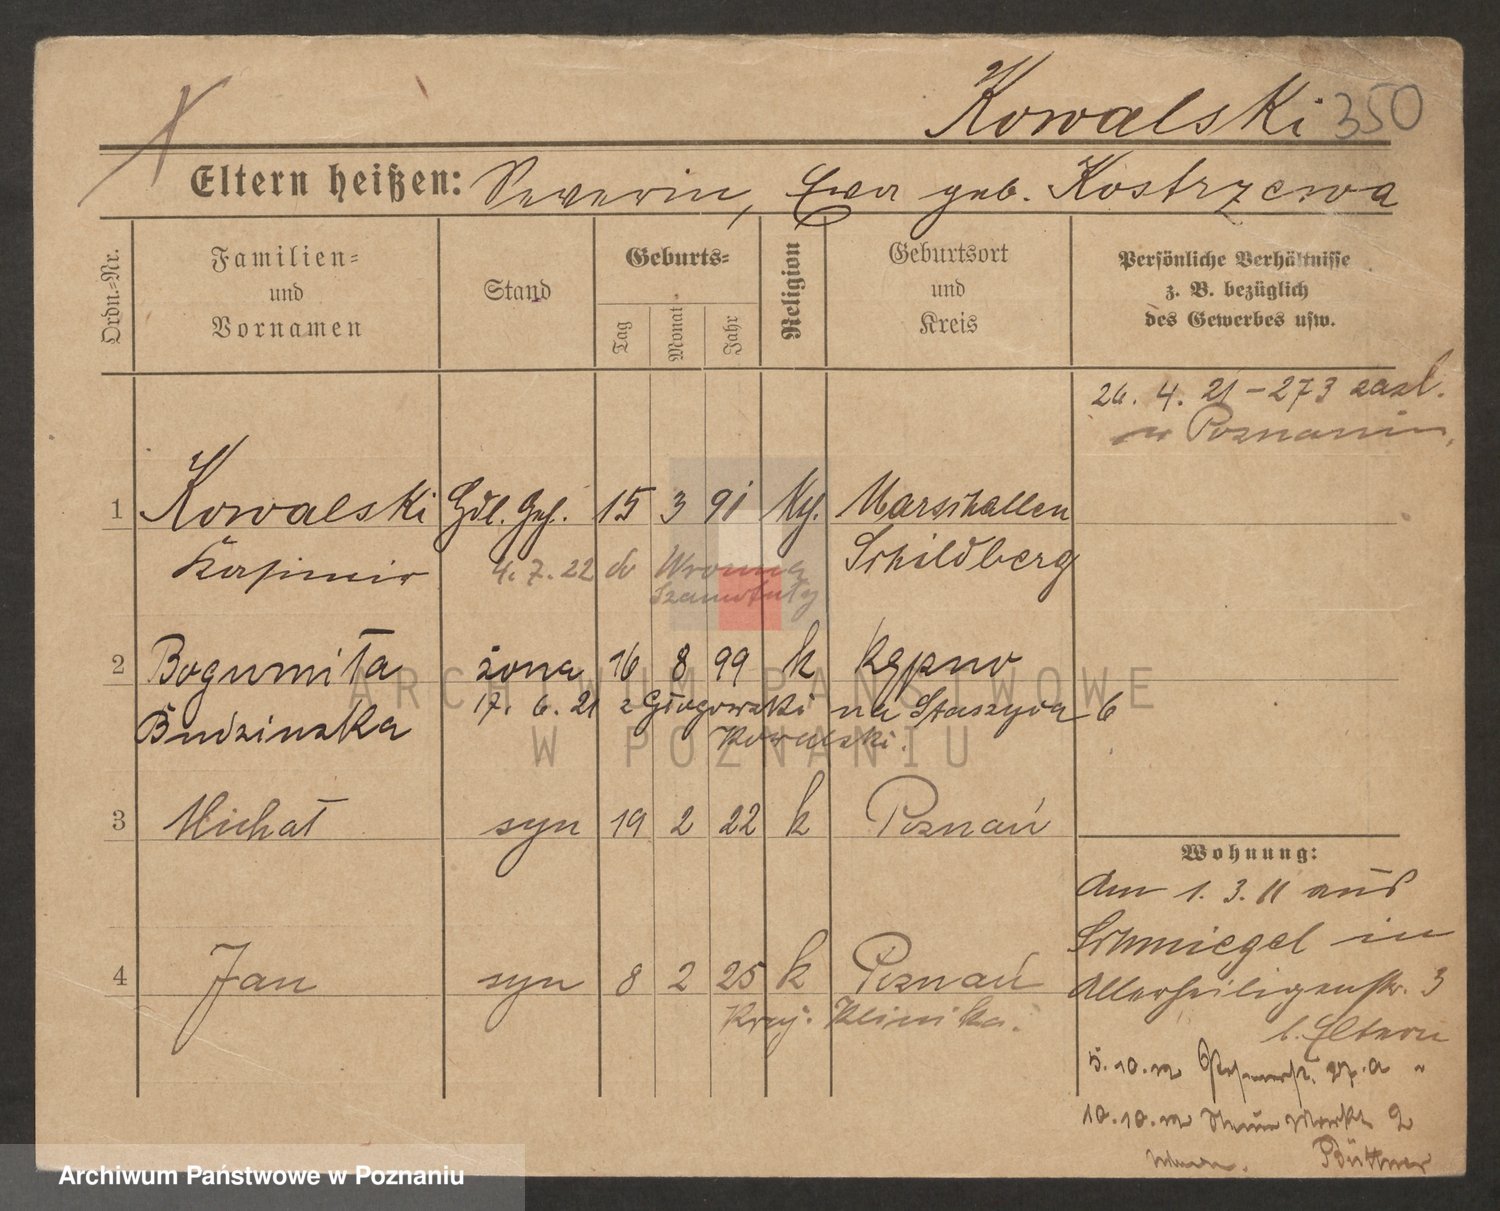 Kowalski 350
Eltern heißen: Severin, Ewa geb. Kostrzewa
Ordn.-Nr.
Familien-
und
Vornamen
Stand
Geburts-
Tag
Monat
Jahr
Religion
Geburtsort
und
Kreis
Persönliche Verhältnisse
z. B. bezüglich
des Gewerbes usw.
26. 4. 21 - 273 zasl.
w Poznaniu,
1 Kowalski Hdl. Geh. 15 3 91 Marschallen
Kasimir
4. 7. 22 do Wronna
Szamotuły
Schildberg
2 Bogumiła żona 16 8 99 k Kępno
Budzinska
17. 6. 21 z Głogowski na Staszyca 6
Kowalski.
3 Michał syn 19 2 22 k Poznań
4 Jan syn 8 2 25 k Poznań
Kraj. Klinika.
Wohnung:
Am 1. 3. 11 aus
Schmiegel in
Allerheiligenstr. 3
b. Eltern
5. 10. 12
10. 10. 12 Neuer Markt 2
Büttner
ARCHIWUM PAŃSTWOWE
W POZNANIU
Archiwum Państwowe w Poznaniu